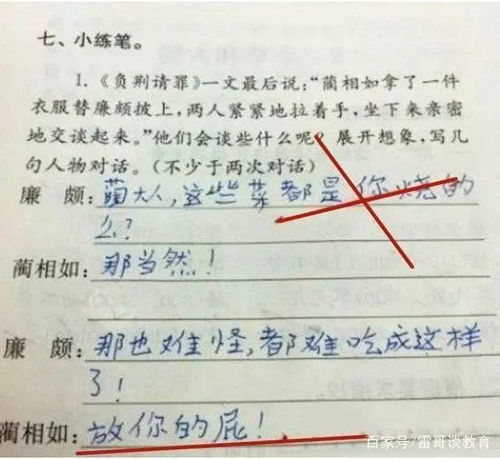 七、小练笔。
1.《负荆请罪》一文最后说:“蔺相如拿了一件
衣服替廉颇披上,两人紧紧地拉着手,坐下来亲密
地交谈起来。”他们会谈些什么呢?展开想象,写几
句人物对话。(不少于两次对话)
廉 颇:蔺大人,这些菜都是你烧的
么?
蔺相如:那当然!
廉 颇:那也难怪,都难吃成这样
了!
蔺相如:放你的屁!
百家号/雷哥谈教育